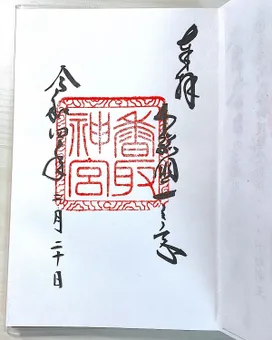 奉拝
下総国一之宮
香取
神宮
令和四年 月二十日